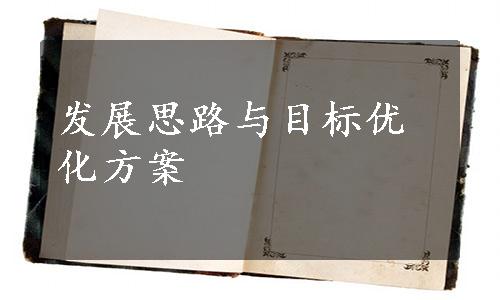 发展思路与目标优
化方案